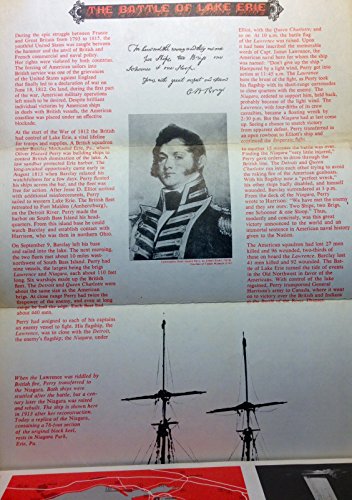 THE BATTLE OF LAKE ERIE
During the epic struggle between France
and Great Britain from 1793 to 1815, the
youthful United States was caught between
the hammer and the anvil of British and
French commercial and naval policy.
Her rights were violated by both combatants,
but the forcing of American sailors into
British service was one of the grievances
of the United States against England
that finally led to a declaration of war on
June 18, 1812. On land, during the first part
of the war, American military operations
left much to be desired. Despite brilliant
individual victories by American ships
in duels with British vessels, the American
coastline was placed under an effective
blockade.
At the start of the War of 1812 the British
had control of Lake Erie, a vital lifeline
for troops and supplies. A British squadron
under
Oliver Hazard Perry was building ships to
contest British domination of the lake. A
low sandbar protected Erie harbor. The
long-awaited opportunity came early in
August 1813 when Barclay relaxed his
watchfulness for a few days. Perry floated
his ships across the bar, and the fleet was
ready for action. After Jesse D. Elliot arrived
with additional reinforcements, Perry
sailed to western Lake Erie. The British fleet
lay at Fort Malden (Amherstburg),
on the Detroit River. Perry made the
harbor on South Bass Island his head-
quarters. From this island base he could
watch Barclay and establish contact with
Harrison, who was then in northern Ohio.
On September 9, Barclay left his base and
sailed into the lake. The next morning,
the two fleets met about 10 miles west-
northwest of South Bass Island. Perry had
nine vessels, the largest being the brigs
Lawrence and Niagara, each about 110 feet
long. Six warships made up the British
fleet. The Detroit and Queen Charlotte were
about the same size as the American
brigs. At close range Perry had twice the
firepower of the enemy, and even at long
range he had the edge. Each fleet had
about 440 men.
Perry had assigned to each of his captains
an enemy vessel to fight. His flagship, the
Lawrence, was to close with the Detroit,
the enemy's flagship; the Niagara, under
When the Lawrence was riddled by
British fire, Perry transferred to
the Niagara. Both ships were
scuttled after the battle, but a cen-
tury later the Niagara was raised
and rebuilt. The ship is shown here
in 1913 after her reconstruction.
Today a replica of the Niagara,
containing a 76-foot section
of the original black keel,
rests in Niagara Park,
Erie, Pa.
We have met the enemy and they are ours
Two Ships, two Brigs one
Schooner & one Sloop.
Yours, with great respect and esteem
O H Perry
Elliot, with the Queen Charlotte; and
so on. At 10 a.m. the battle flag
of the Lawrence was raised. Upon
it had been inscribed the memorable
words of Capt. James Lawrence, the
American hero for whom the ship was
named: "Don't give up the ship."
Hampered by a light wind, Perry got
into action at 11:45 a.m. The Lawrence
bore the brunt of the fight, as Perry took
his flagship with its short-range guns
to close quarters with the enemy. The
Niagara, ordered to support him, held back,
probably because of the light wind. The
Lawrence, with four-fifths of its crew
casualties, became a floating wreck. By
2:30 p.m. the Niagara had at last come
up. Seeing a chance to snatch victory
from apparent defeat, Perry transferred in
an open rowboat to Elliott's ship and
continued
In another 15 minutes the battle was over.
Finding the Niagara "very little injured,"
Perry gave orders to drive through the
British line. The Detroit and Queen
Charlotte ran into each other in trying to avoid
the raking fire of the American gunboats.
With his flagship now a "perfect wreck,"
his other ships badly disabled, and himself
wounded, Barclay surrendered at 3 p.m.
From the deck of the Niagara, Perry
wrote to Harrison: "We have met the enemy
and they are ours; Two Ships, two Brigs,
one Schooner & one Sloop." Thus,
modestly and concisely, was this great
victory announced to the world and an
immortal sentence in American naval history
given to the Nation.
The American squadron had lost 27 men
killed and 96 wounded, two-thirds of
these on board the Lawrence. Barclay lost
41 men killed and 92 wounded. The Bat-
tle of Lake Erie turned the tide of events
in the Old Northwest in favor of the
Americans. With control of the lake
regained, Perry transported General
Harrison's army to Canada, where it went
on to victory over the British and Indians
in the Battle of the